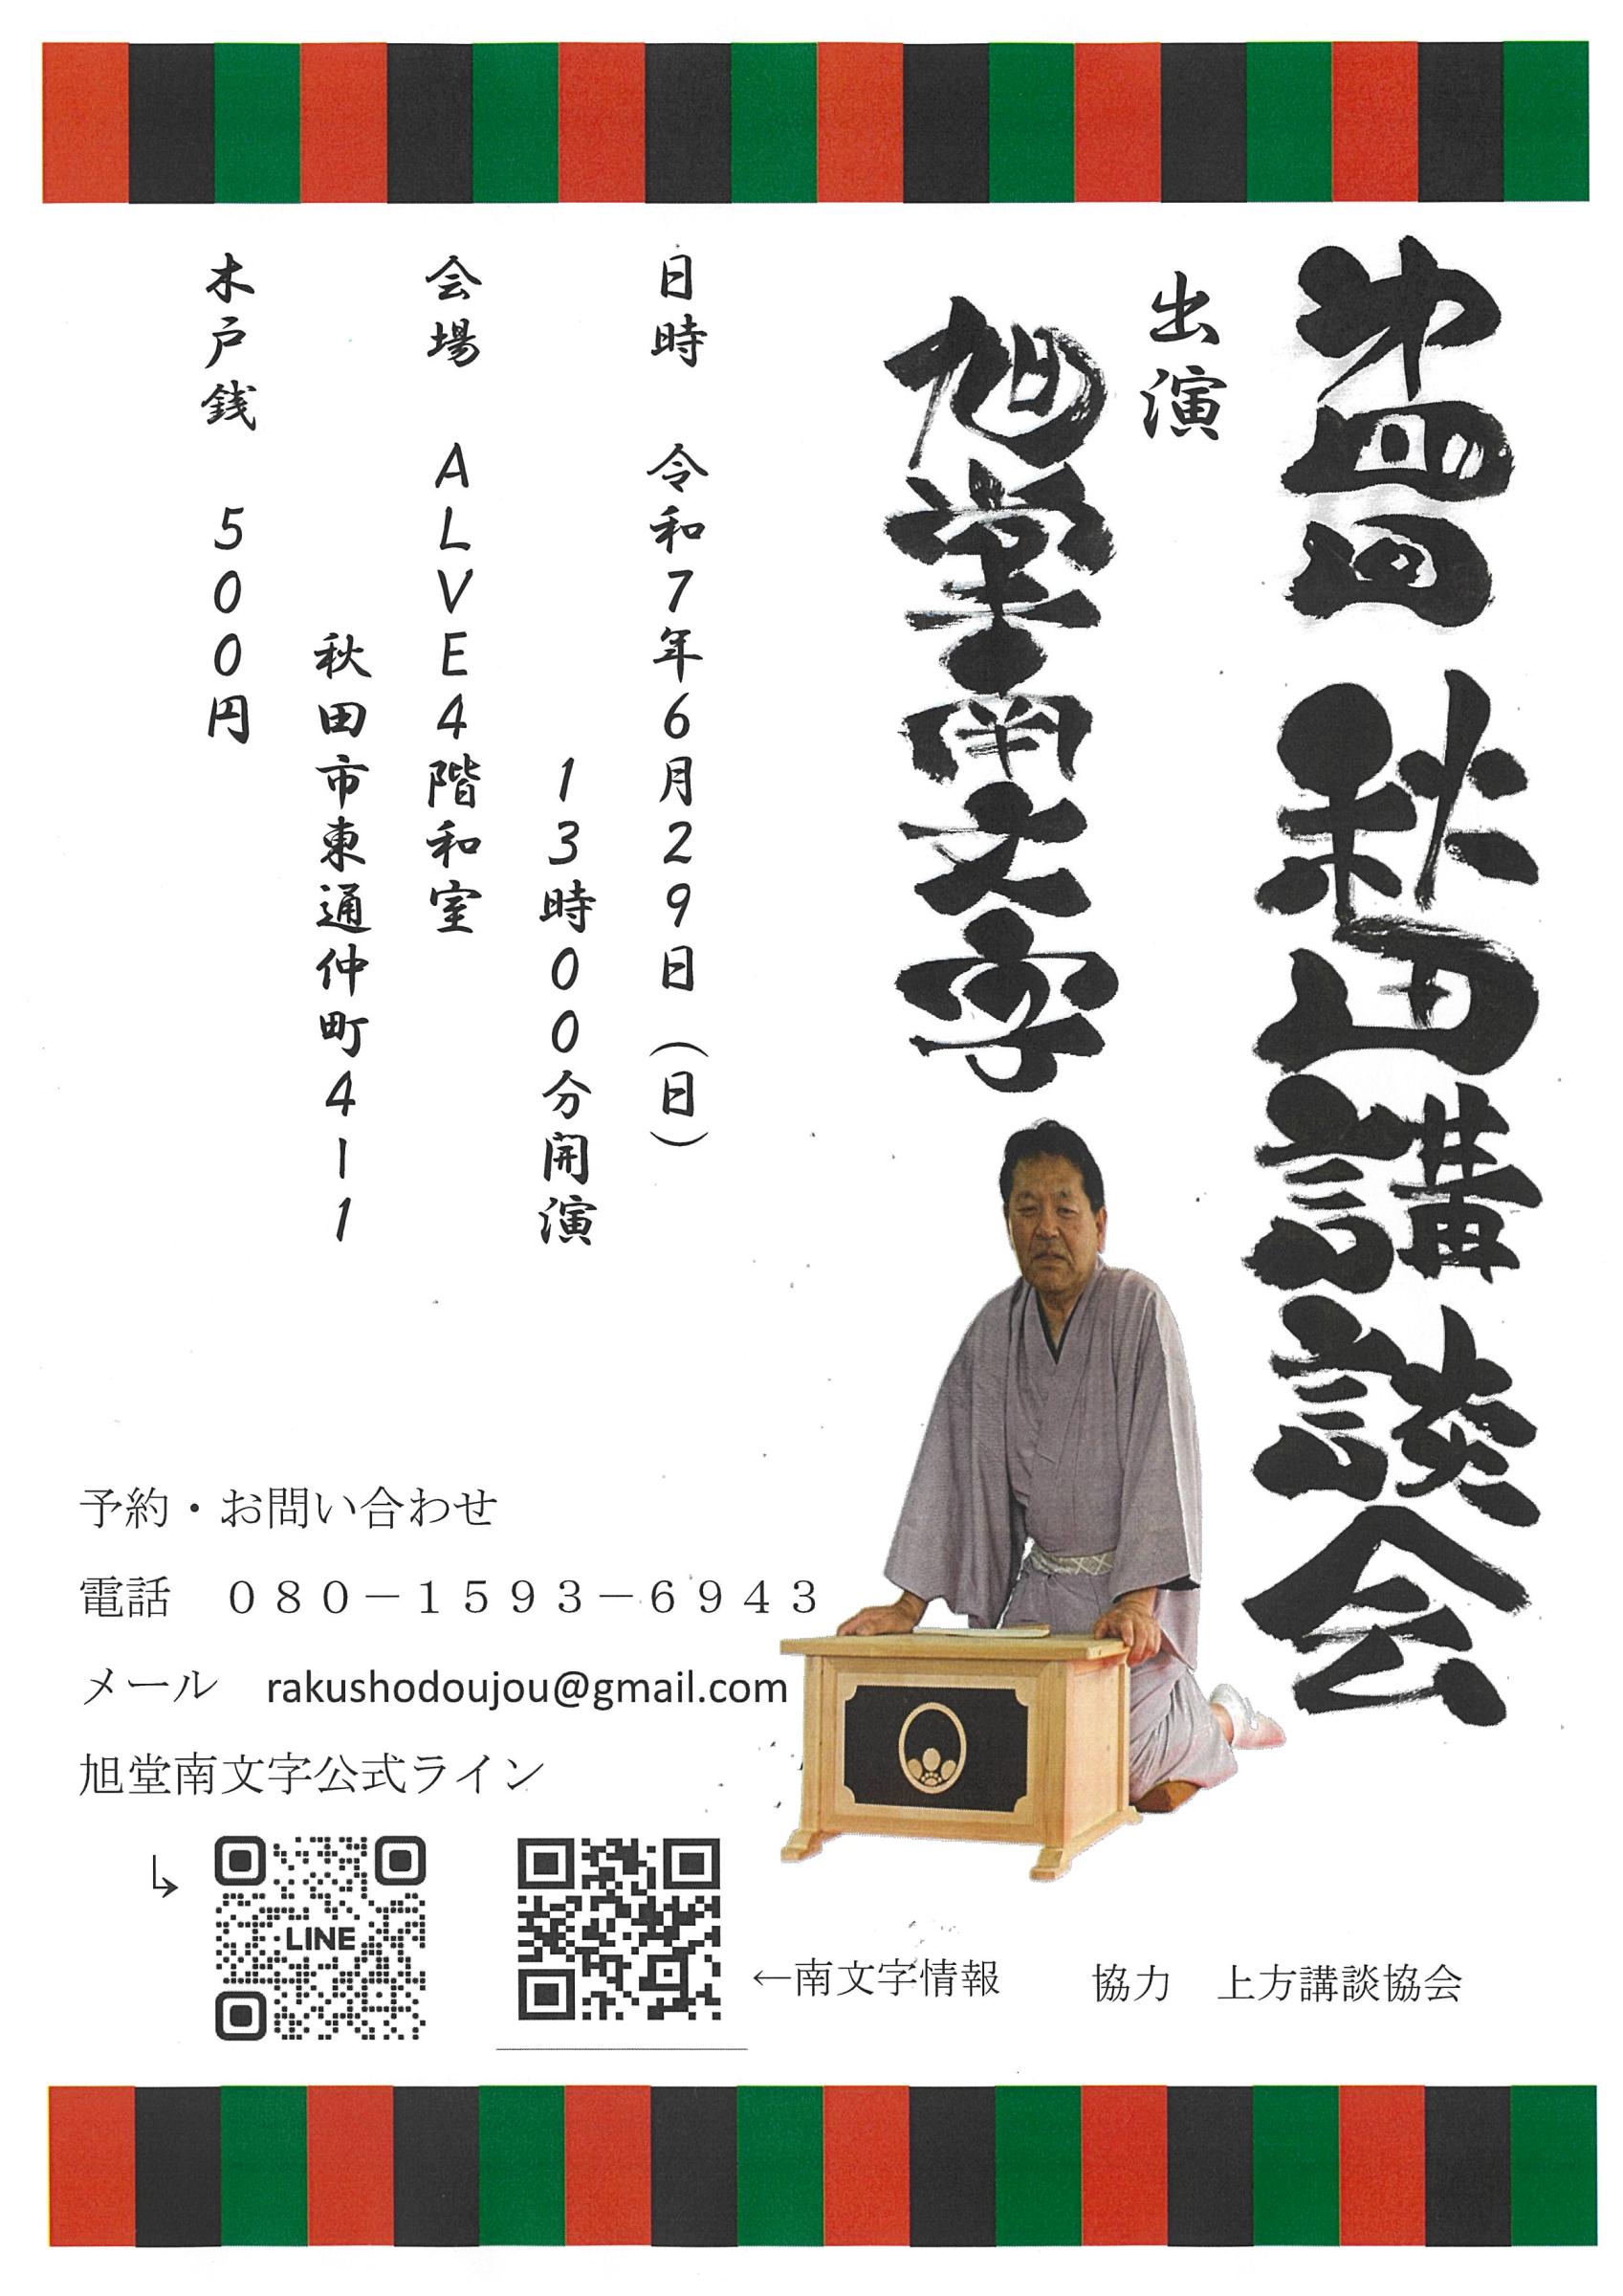 第四回 秋田講談会
出演
旭堂南文字
日時 令和7年6月29日(日)
13時00分開演
会場 ALVE4階和室
秋田市東通仲町4ー1
木戸銭 500円
予約・お問い合わせ
電話 080-1593-6943
メール rakushodoujou@gmail.com
旭堂南文字公式ライン
↳
LINE
←南文字情報
協力 上方講談協会